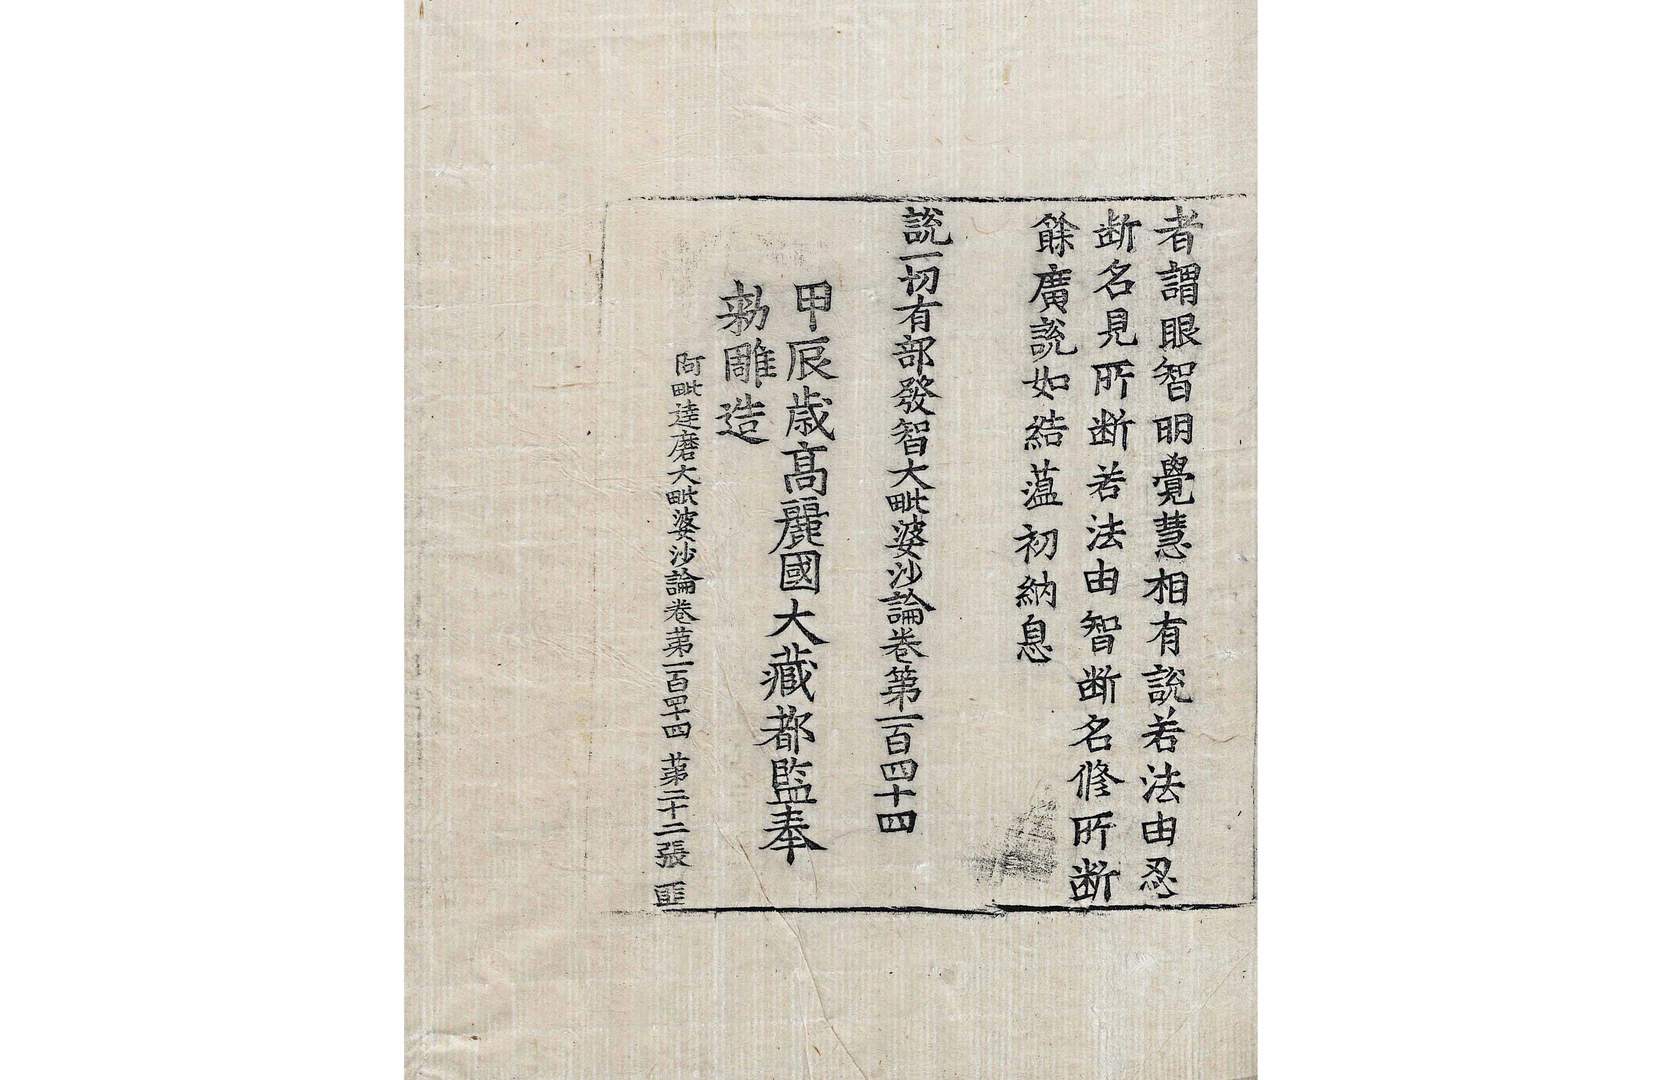 者謂眼智明覺慧相有說若法由忍
断名見所断若法由智断名修所断
餘廣說如結薀初納息
說一切有部發智大毗婆沙論卷第一百四十四
甲辰歲高麗國大藏都監奉
勑雕造
阿毗達磨大毗婆沙論卷苐一百四十四 苐二十二張 匪